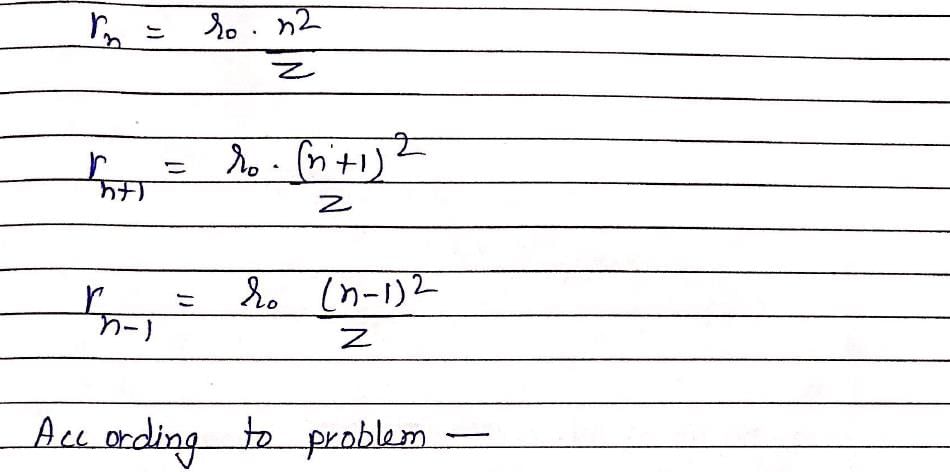 r_n = r_0 . n^2/Z
r_{n+1} = r_0 . (n+1)^2/Z
r_{n-1} = r_0 (n-1)^2/Z
According to problem —